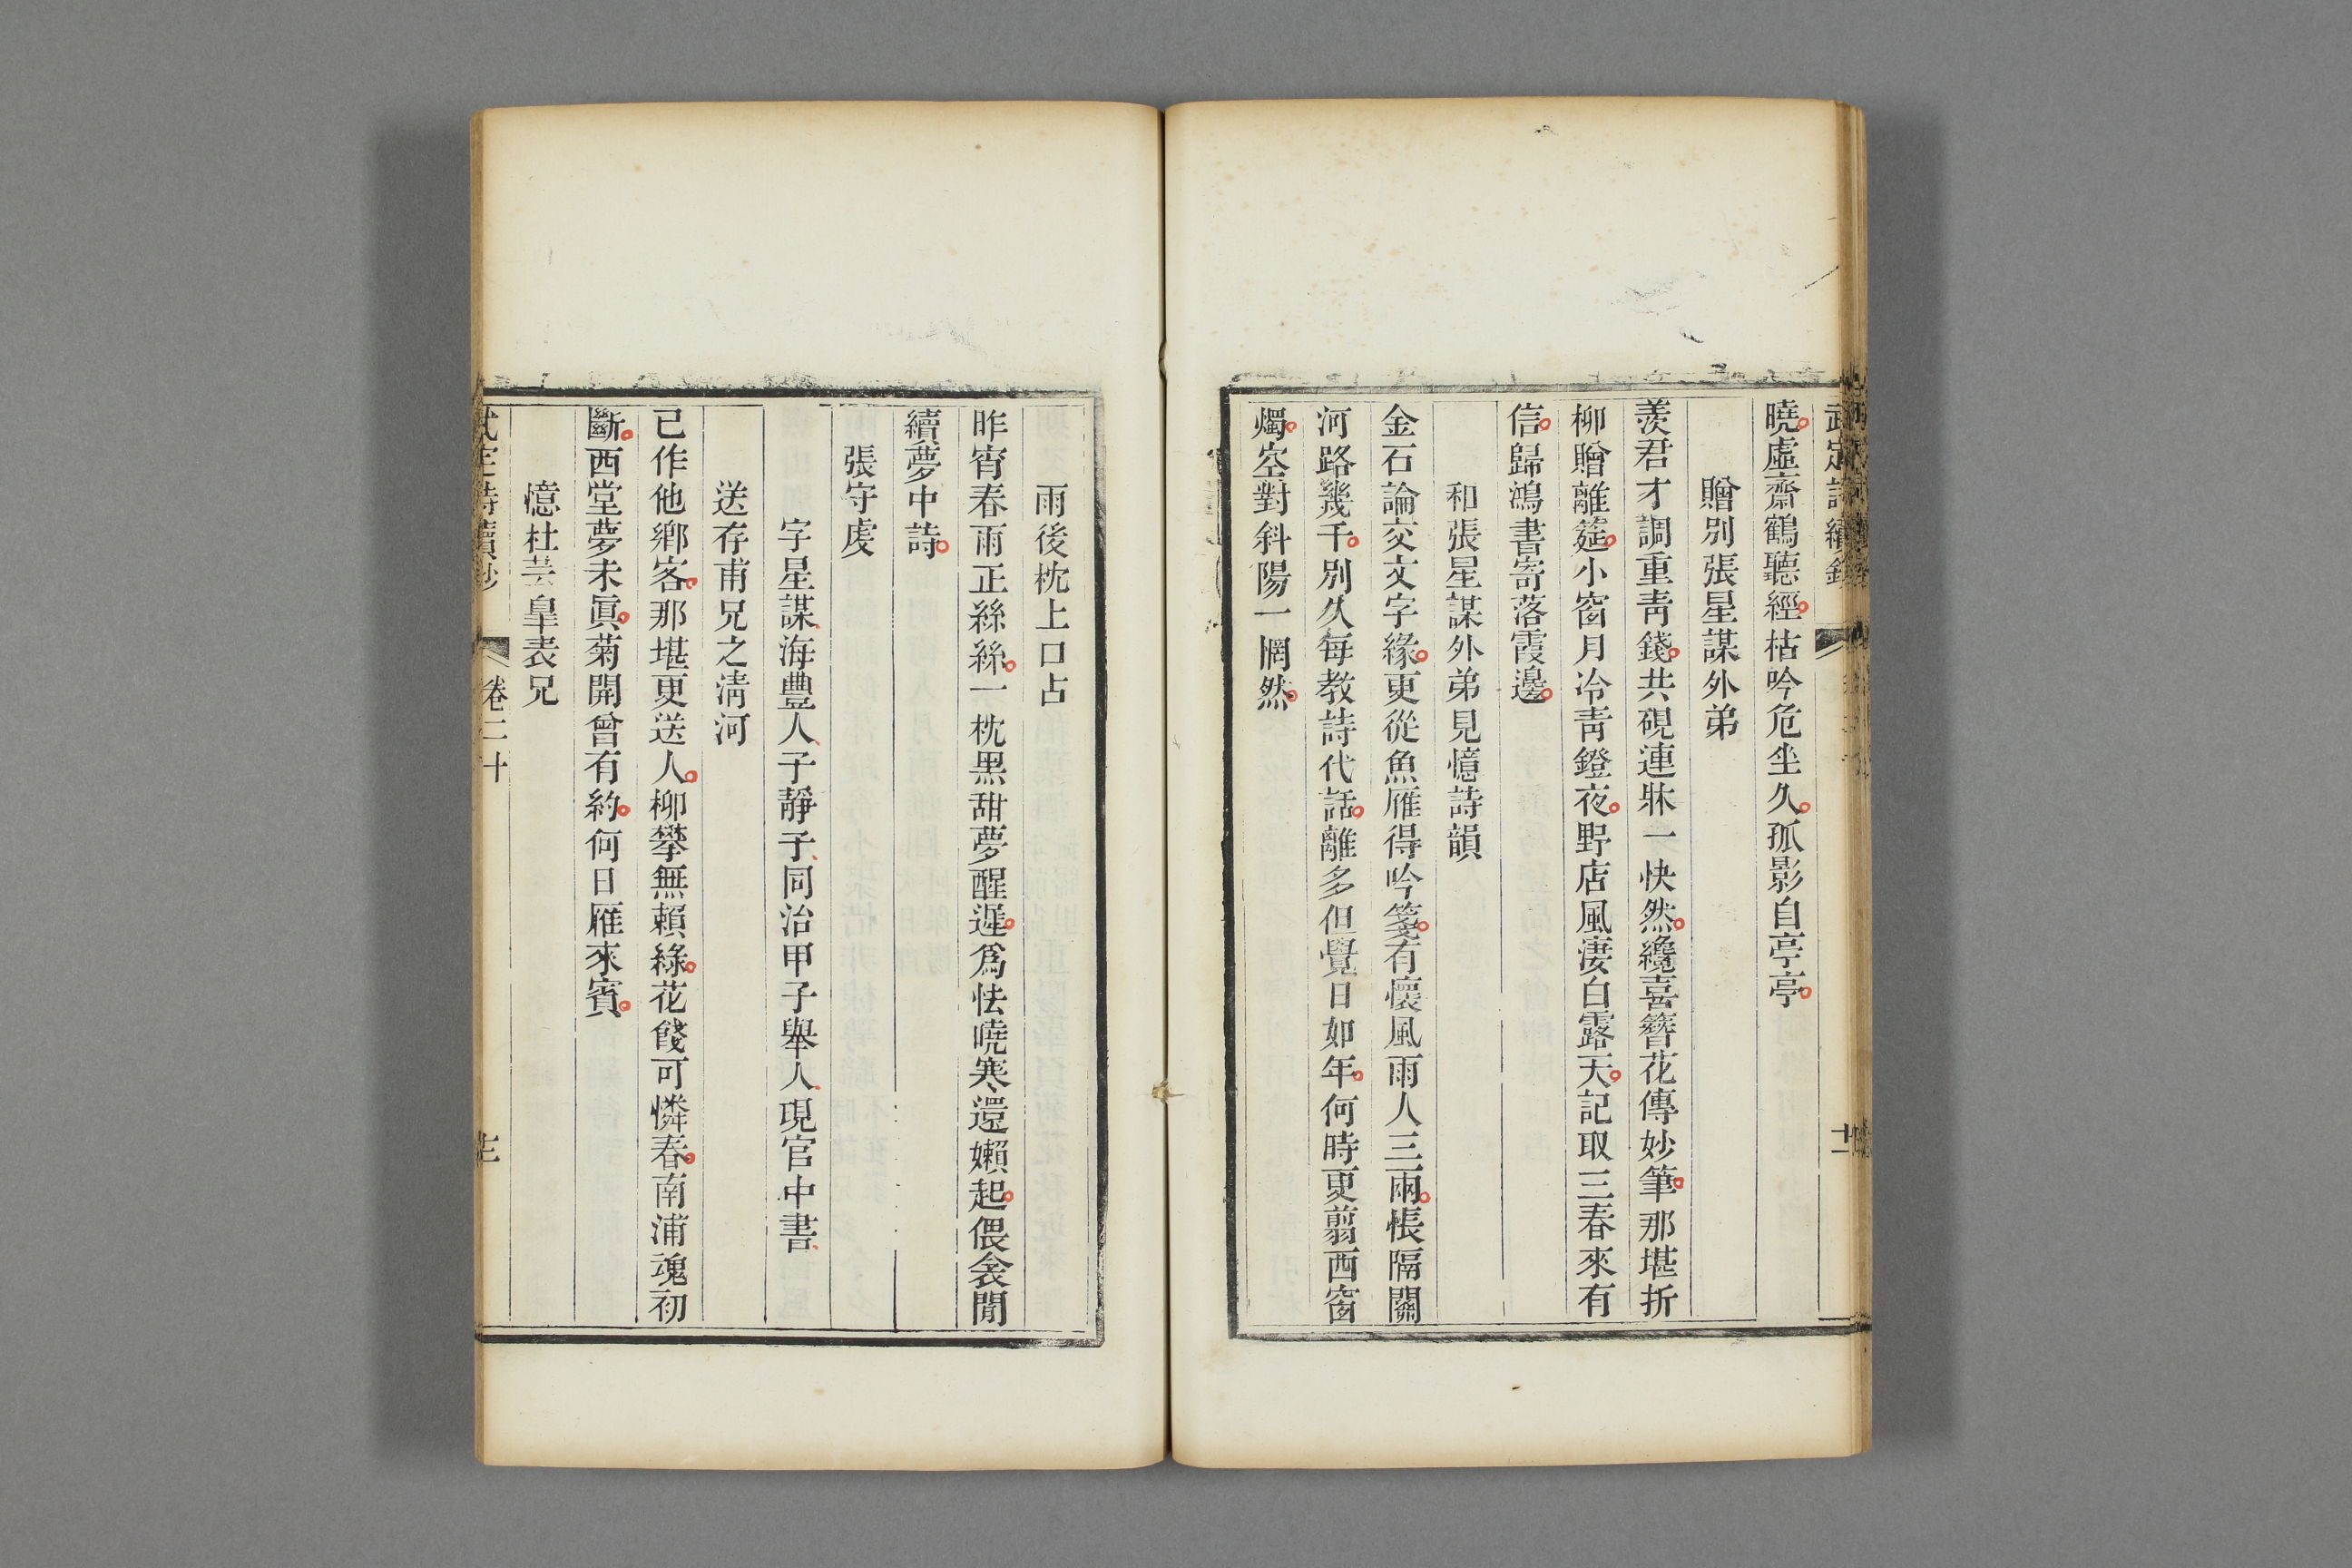 武定詩續鈔
曉虛齋鶴聽經枯吟危坐久孤影自亭亭
贈別張星謀外弟
羨君才調重靑錢共硯連牀一快然纔喜簪花傳妙筆那堪折
柳贈離筵小窗月冷靑鐙夜野店風淒白露天記取三春來有
信歸鴻書寄落霞邊
和張星謀外弟見憶詩韻
金石論交文字緣更從魚雁得吟箋有懷風雨人三兩悵隔關
河路幾千別久每教詩代話離多但覺日如年何時更翦西窗
燭空對斜陽一惘然
雨後枕上口占
昨宵春雨正絲絲一枕黑甜夢醒遲爲怯曉寒還嬾起偎衾閒
續夢中詩
張守虔
字星謀海豐人子靜子同治甲子舉人現官中書
送存甫兄之淸河
已作他鄉客那堪更送人柳攀無賴綠花餞可憐春南浦魂初
斷西堂夢未眞菊開曾有約何日雁來賓
憶杜芸皐表兄
武定詩續鈔
卷二十